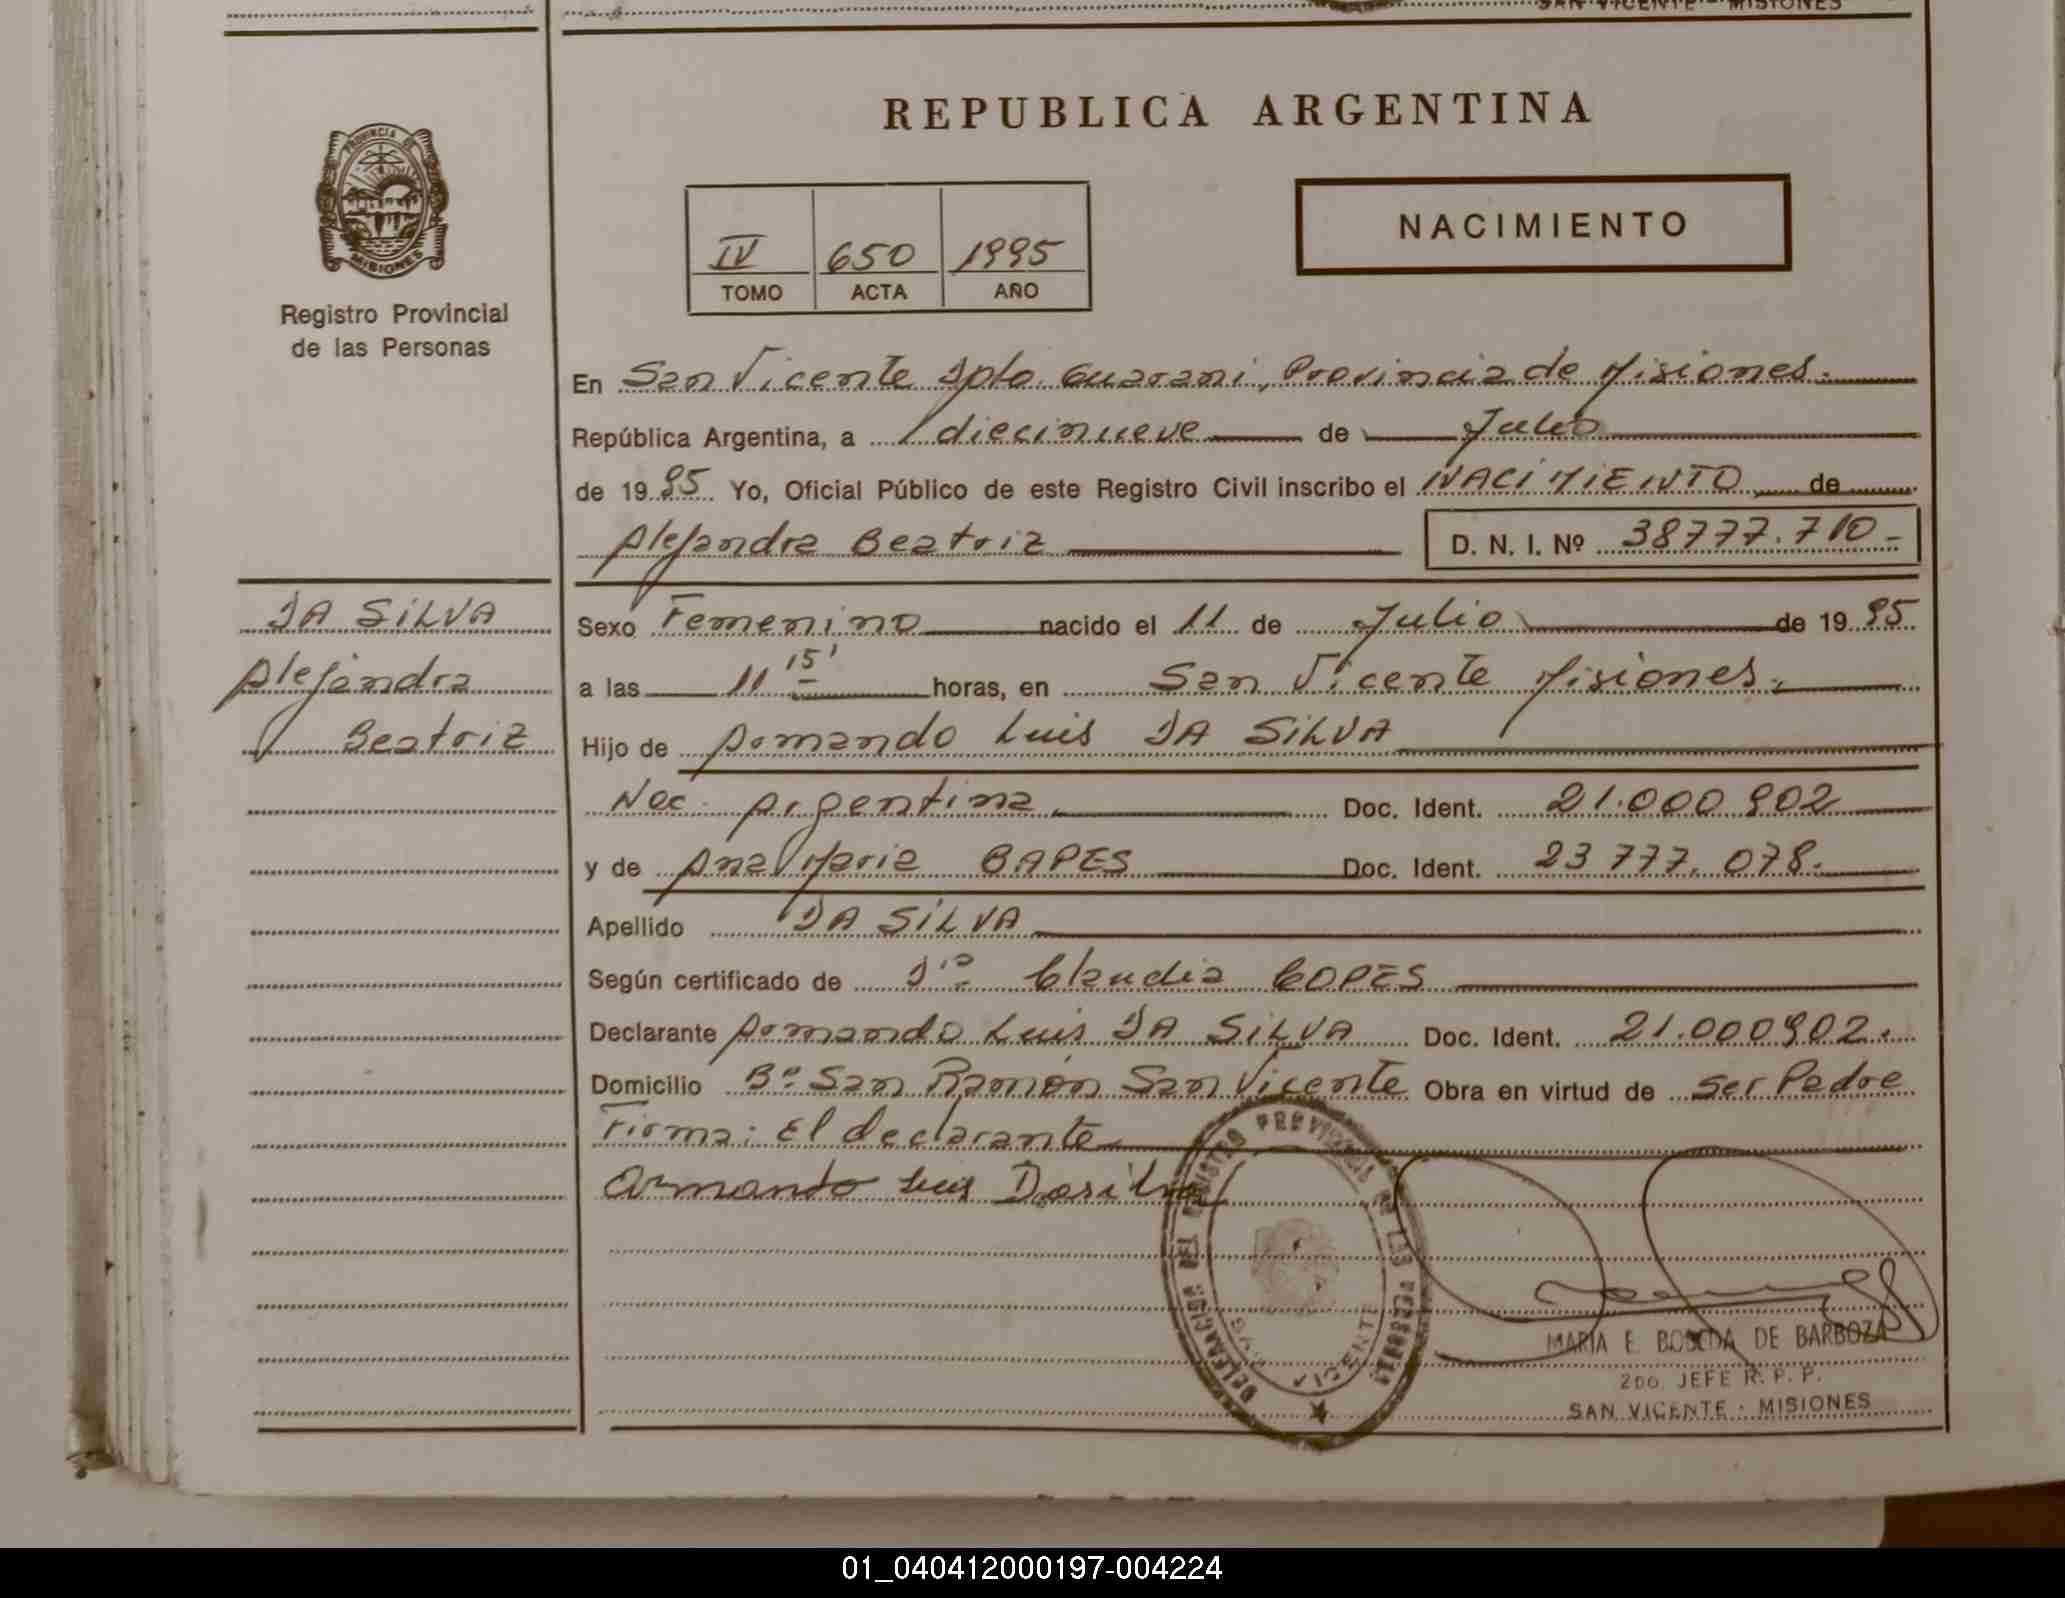 SAN VICENTE - MISIONES
REPUBLICA ARGENTINA
PROVINCIA DE
MISIONES
Registro Provincial
de las Personas
IV 650 1995
TOMO ACTA AÑO
NACIMIENTO
En San Vicente Dpto. Guarani, Provincia de Misiones.
República Argentina, a diecinueve de Julio
de 1995 Yo, Oficial Público de este Registro Civil inscribo el NACIMIENTO de
Alejandra Beatriz D. N. I. Nº 38777.710-
DA SILVA
Alejandra
Beatriz
Sexo Femenino nacido el 11 de Julio de 1995
a las 11 15' horas, en San Vicente Misiones.
Hijo de Armando Luis DA SILVA
Nac. Argentina Doc. Ident. 21.000.902
y de Ana Maria BAPES Doc. Ident. 23 777.078.
Apellido DA SILVA
Según certificado de Dra Claudia COPES
Declarante Armando Luis DA SILVA Doc. Ident. 21.000902.
Domicilio Bº San Ramón San Vicente Obra en virtud de ser Padre
Firma: El declarante
Armando Luis Dasilva
DELEGACION DEL REGISTRO PROVINCIAL DE LAS PERSONAS
SAN VICENTE
MARIA E. DE BARBOZA
2do. JEFE R. P. P.
SAN VICENTE - MISIONES
01_040412000197-004224